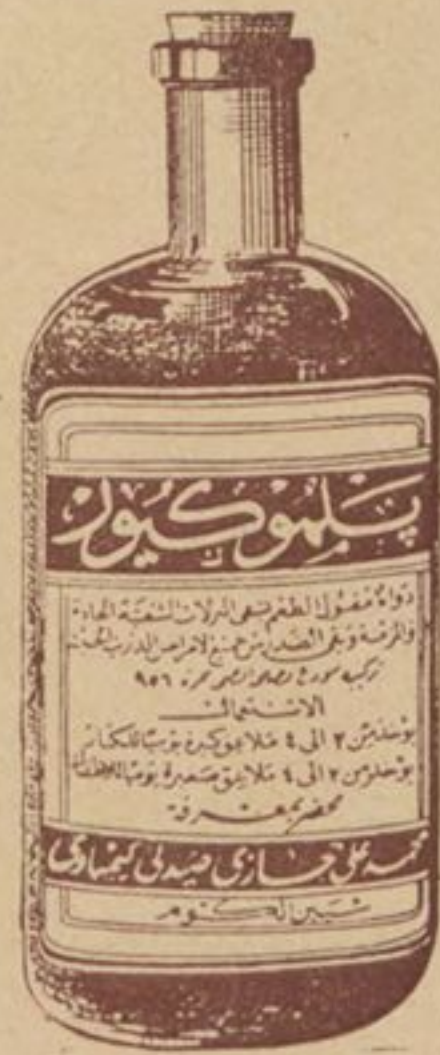 پلموكيور
دواء مقبول الطعم يشفى النزلات الشعبية الحادة
والمزمنة ويقى الصدر من جميع الامراض
٩٥٦
الاستعمال
يؤخذ من ٢ الى ٤ ملاعق كبيرة يوميا للكبار
يؤخذ من ٢ الى ٤ ملاعق صغيرة يوميا للاطفال
محضر بمعرفة
محمد على حجازى صيدلى كيماوى
شبين الكوم